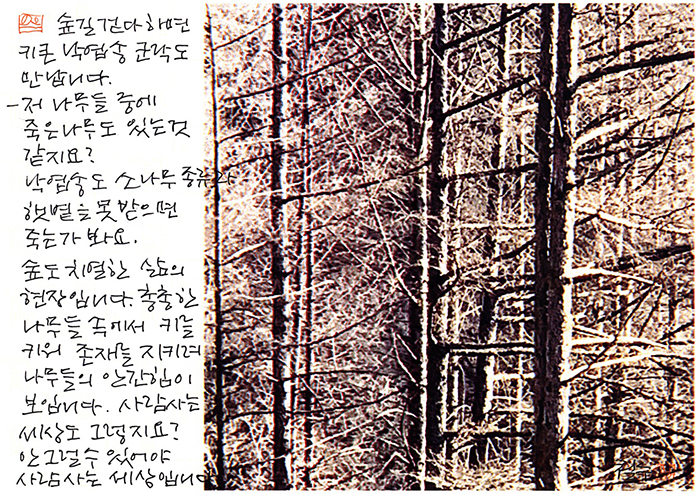 숲길 걷다 하면
키큰 낙엽송 군락도
만납니다.
-저 나무들 중에
죽은나무도 있는것
같지요?
낙엽송도 소나무 종류라
햇볕을 못받으면
죽는가 봐요.
숲도 치열한 삶의
현장입니다. 충충한
나무들 속에서 키를
키워 존재를 지키려
나무들의 안간힘이
보입니다. 사람사는
세상도 그렇지요?
안그럴수 있어야
사람사는 세상입니다